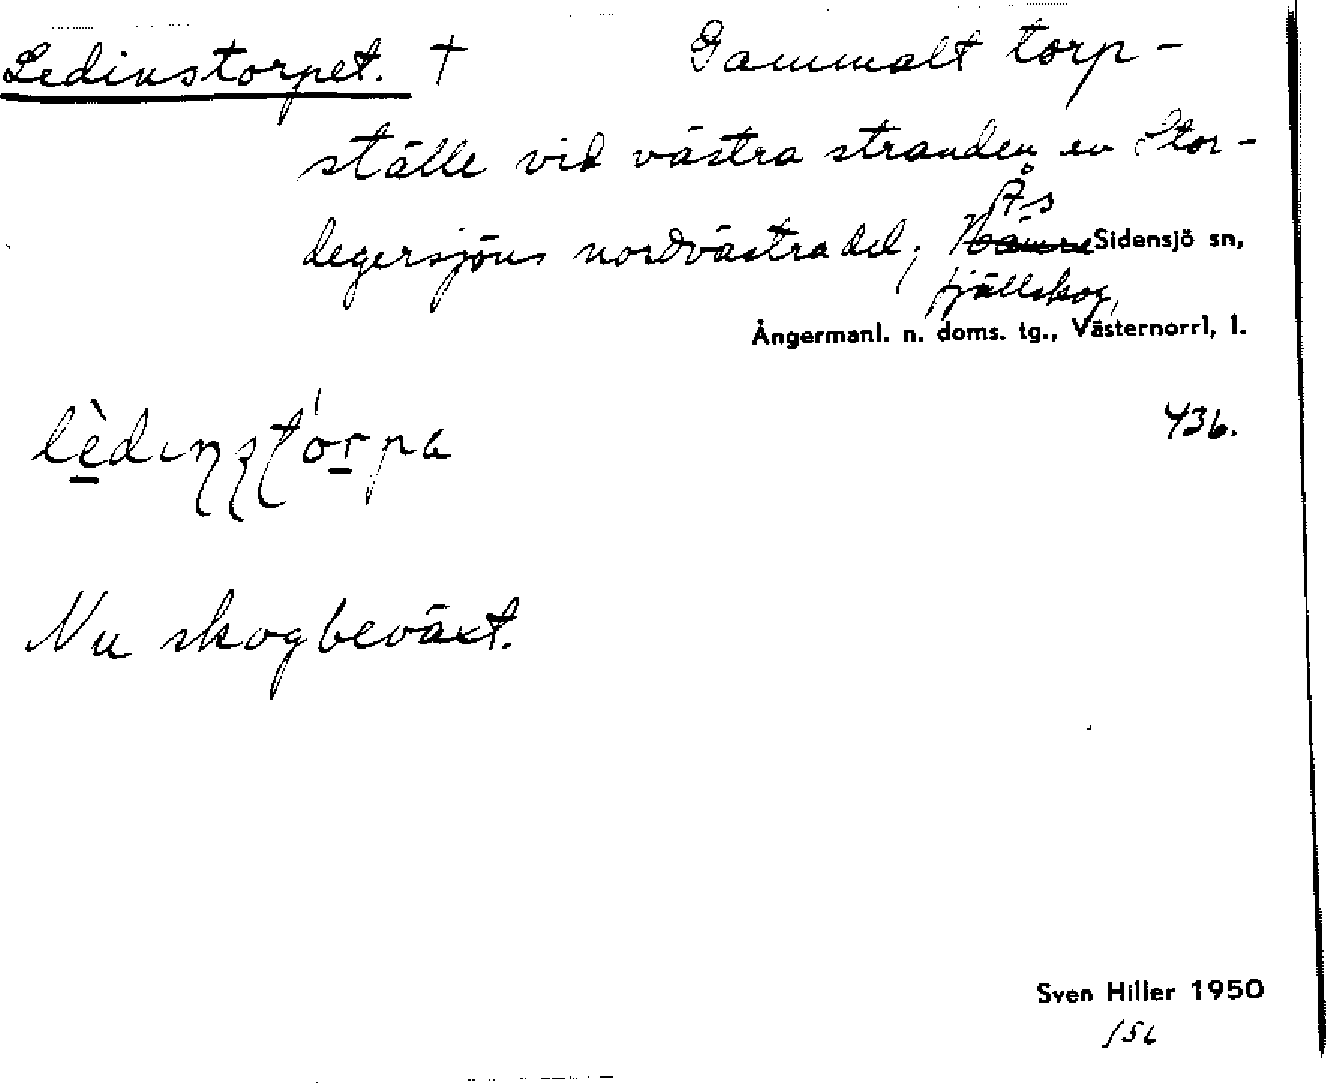 Ledinstorpet. † Gammalt torp-
ställe vid västra stranden en Stor-
degersjöns nordvästra del;
Ås
Sidensjö sn,
fjällskog,
Ångermanl. n. doms. tg., Västernorrl, l.
436.
Nu skogbeväxt.
Sven Hiller 1950
156